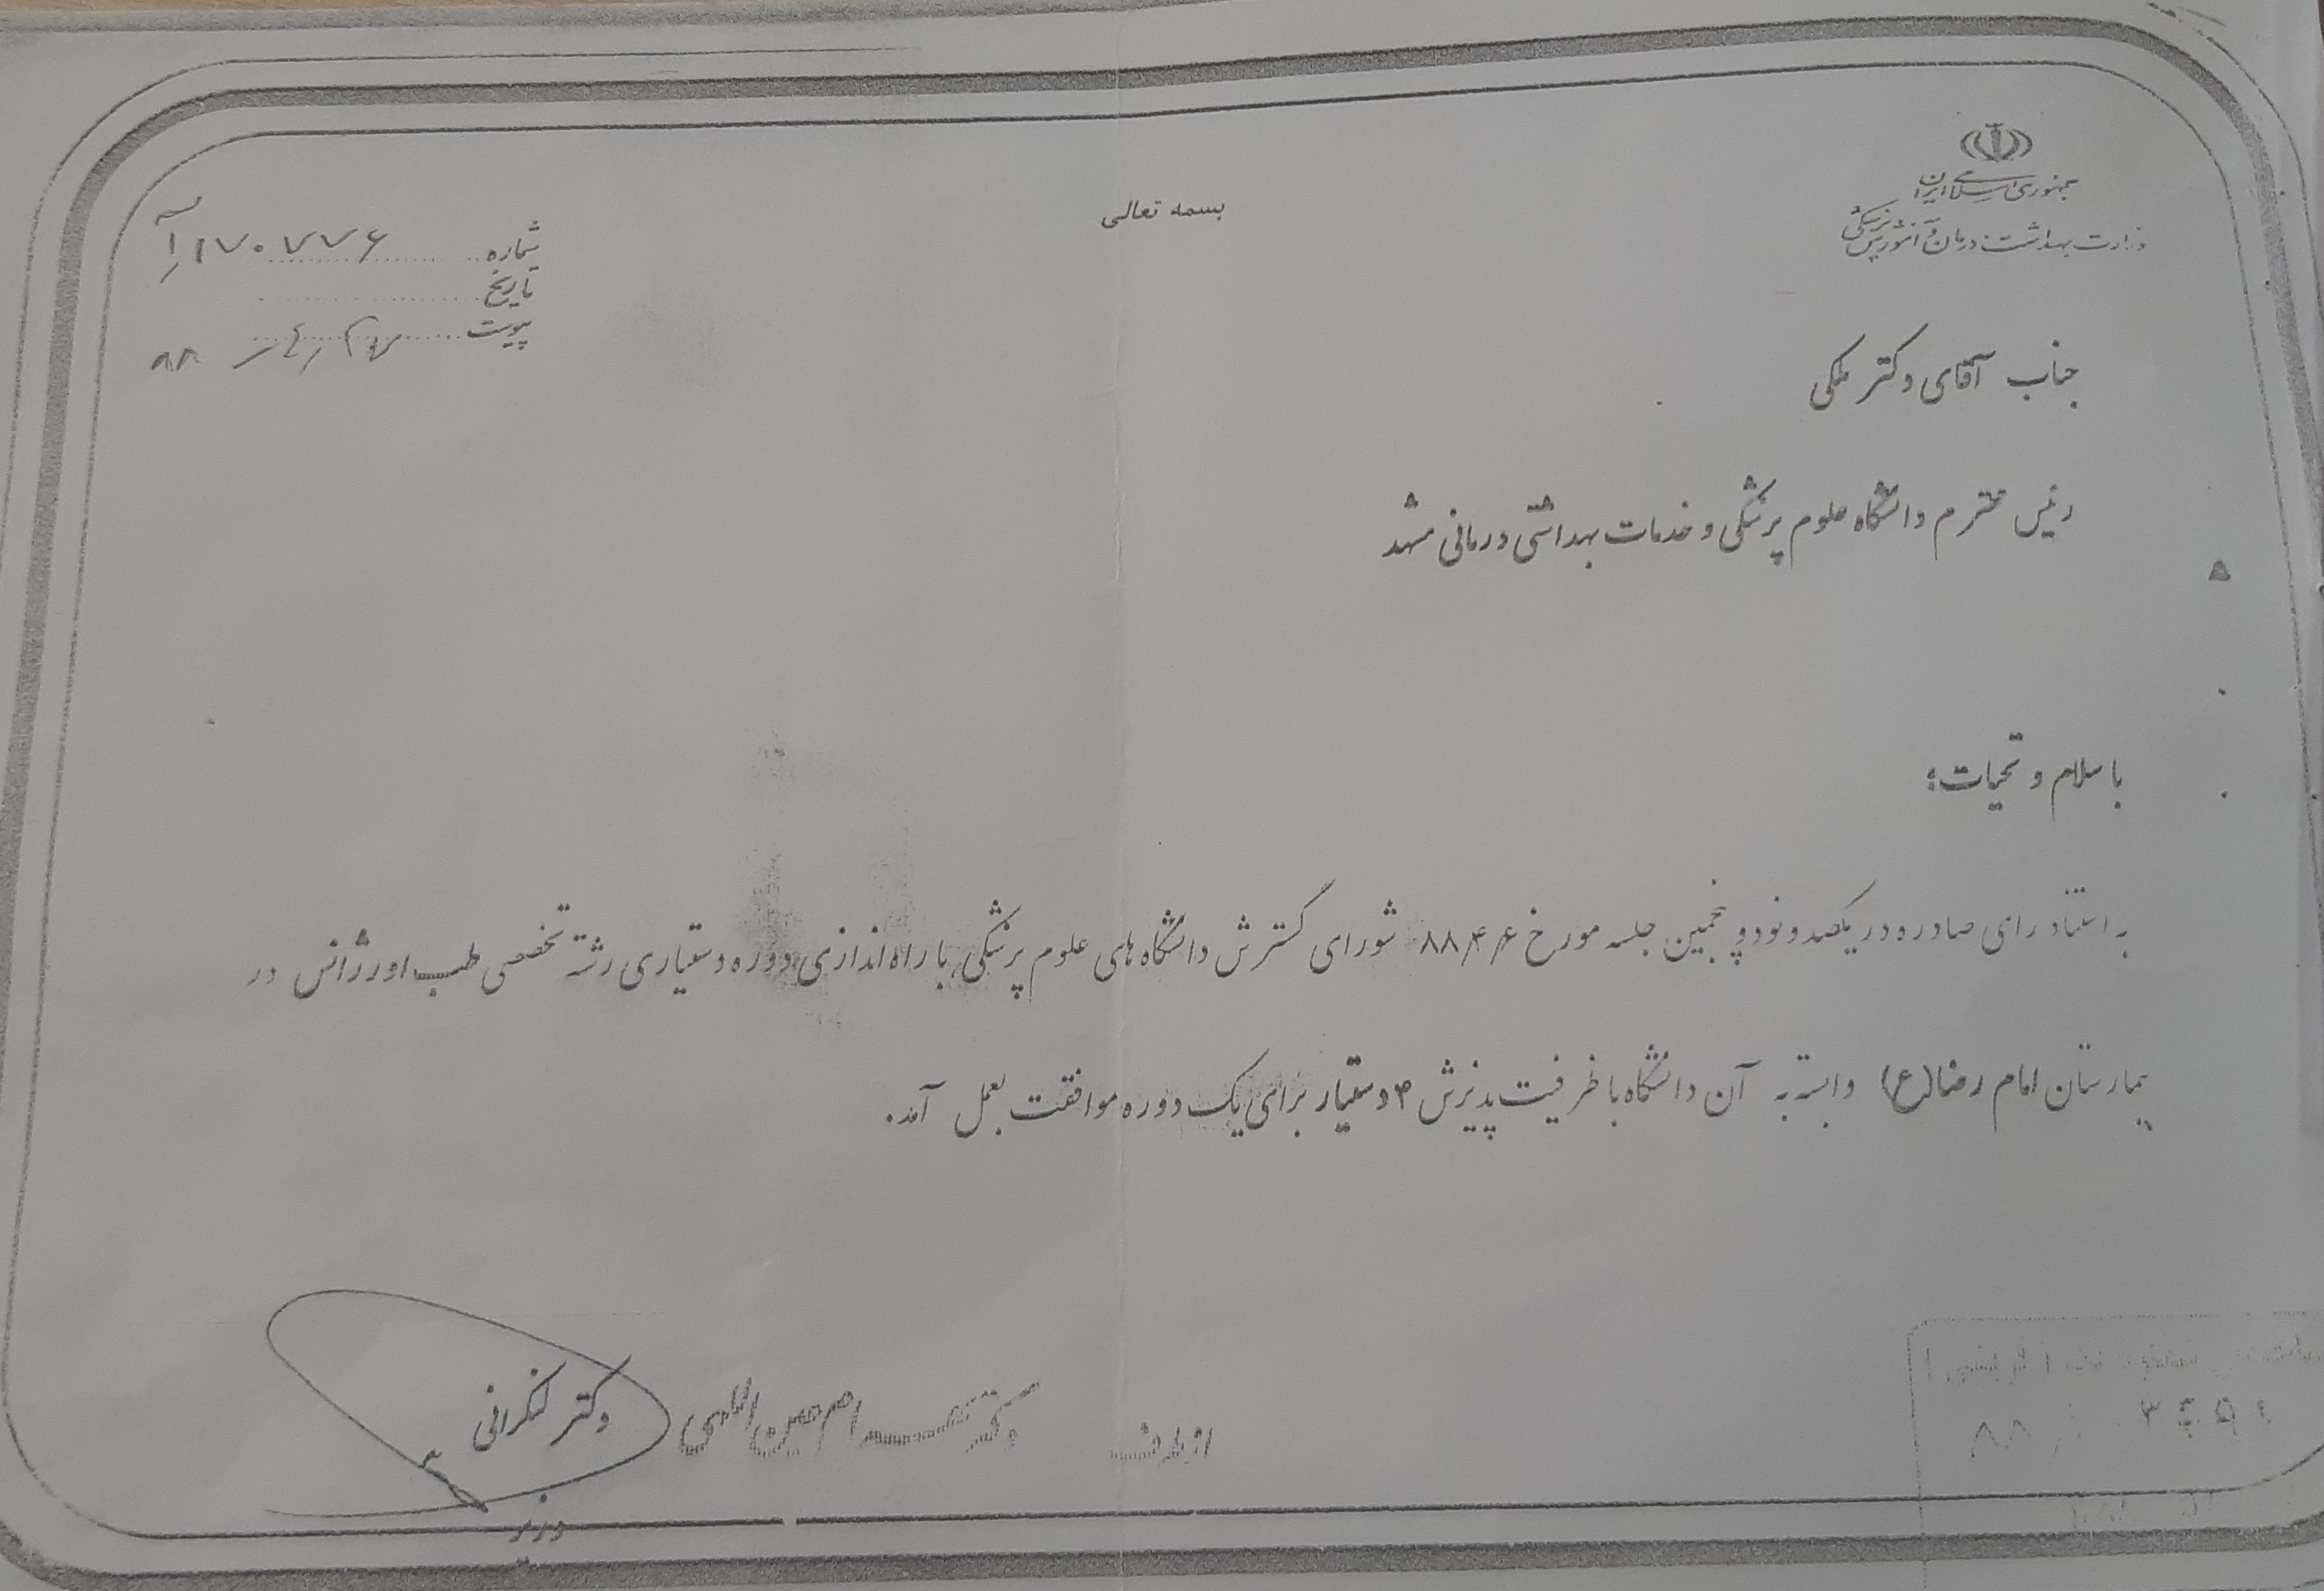 جمهوری اسلامی ایران
وزارت بهداشت، درمان و آموزش پزشکی
بسمه تعالی
شماره ۱۷۰۷۷۶/آ
تاریخ
پیوست
۸۸
جناب آقای دکتر ملکی
رئیس محترم دانشگاه علوم پزشکی و خدمات بهداشتی درمانی مشهد
با سلام و تحیات؛
به استناد رای صادره در یکصد و نود و پنجمین جلسه مورخ ۸۸/۴/۶ شورای گسترش دانشگاه های علوم پزشکی، با راه اندازی دوره دستیاری رشته تخصصی طب اورژانس در
بیمارستان امام رضا (ع) وابسته به آن دانشگاه با ظرفیت پذیرش ۴ دستیار برای یک دوره موافقت بعمل آمد.
دکتر لنکرانی
وزیر
از طرف دکتر
۸۸